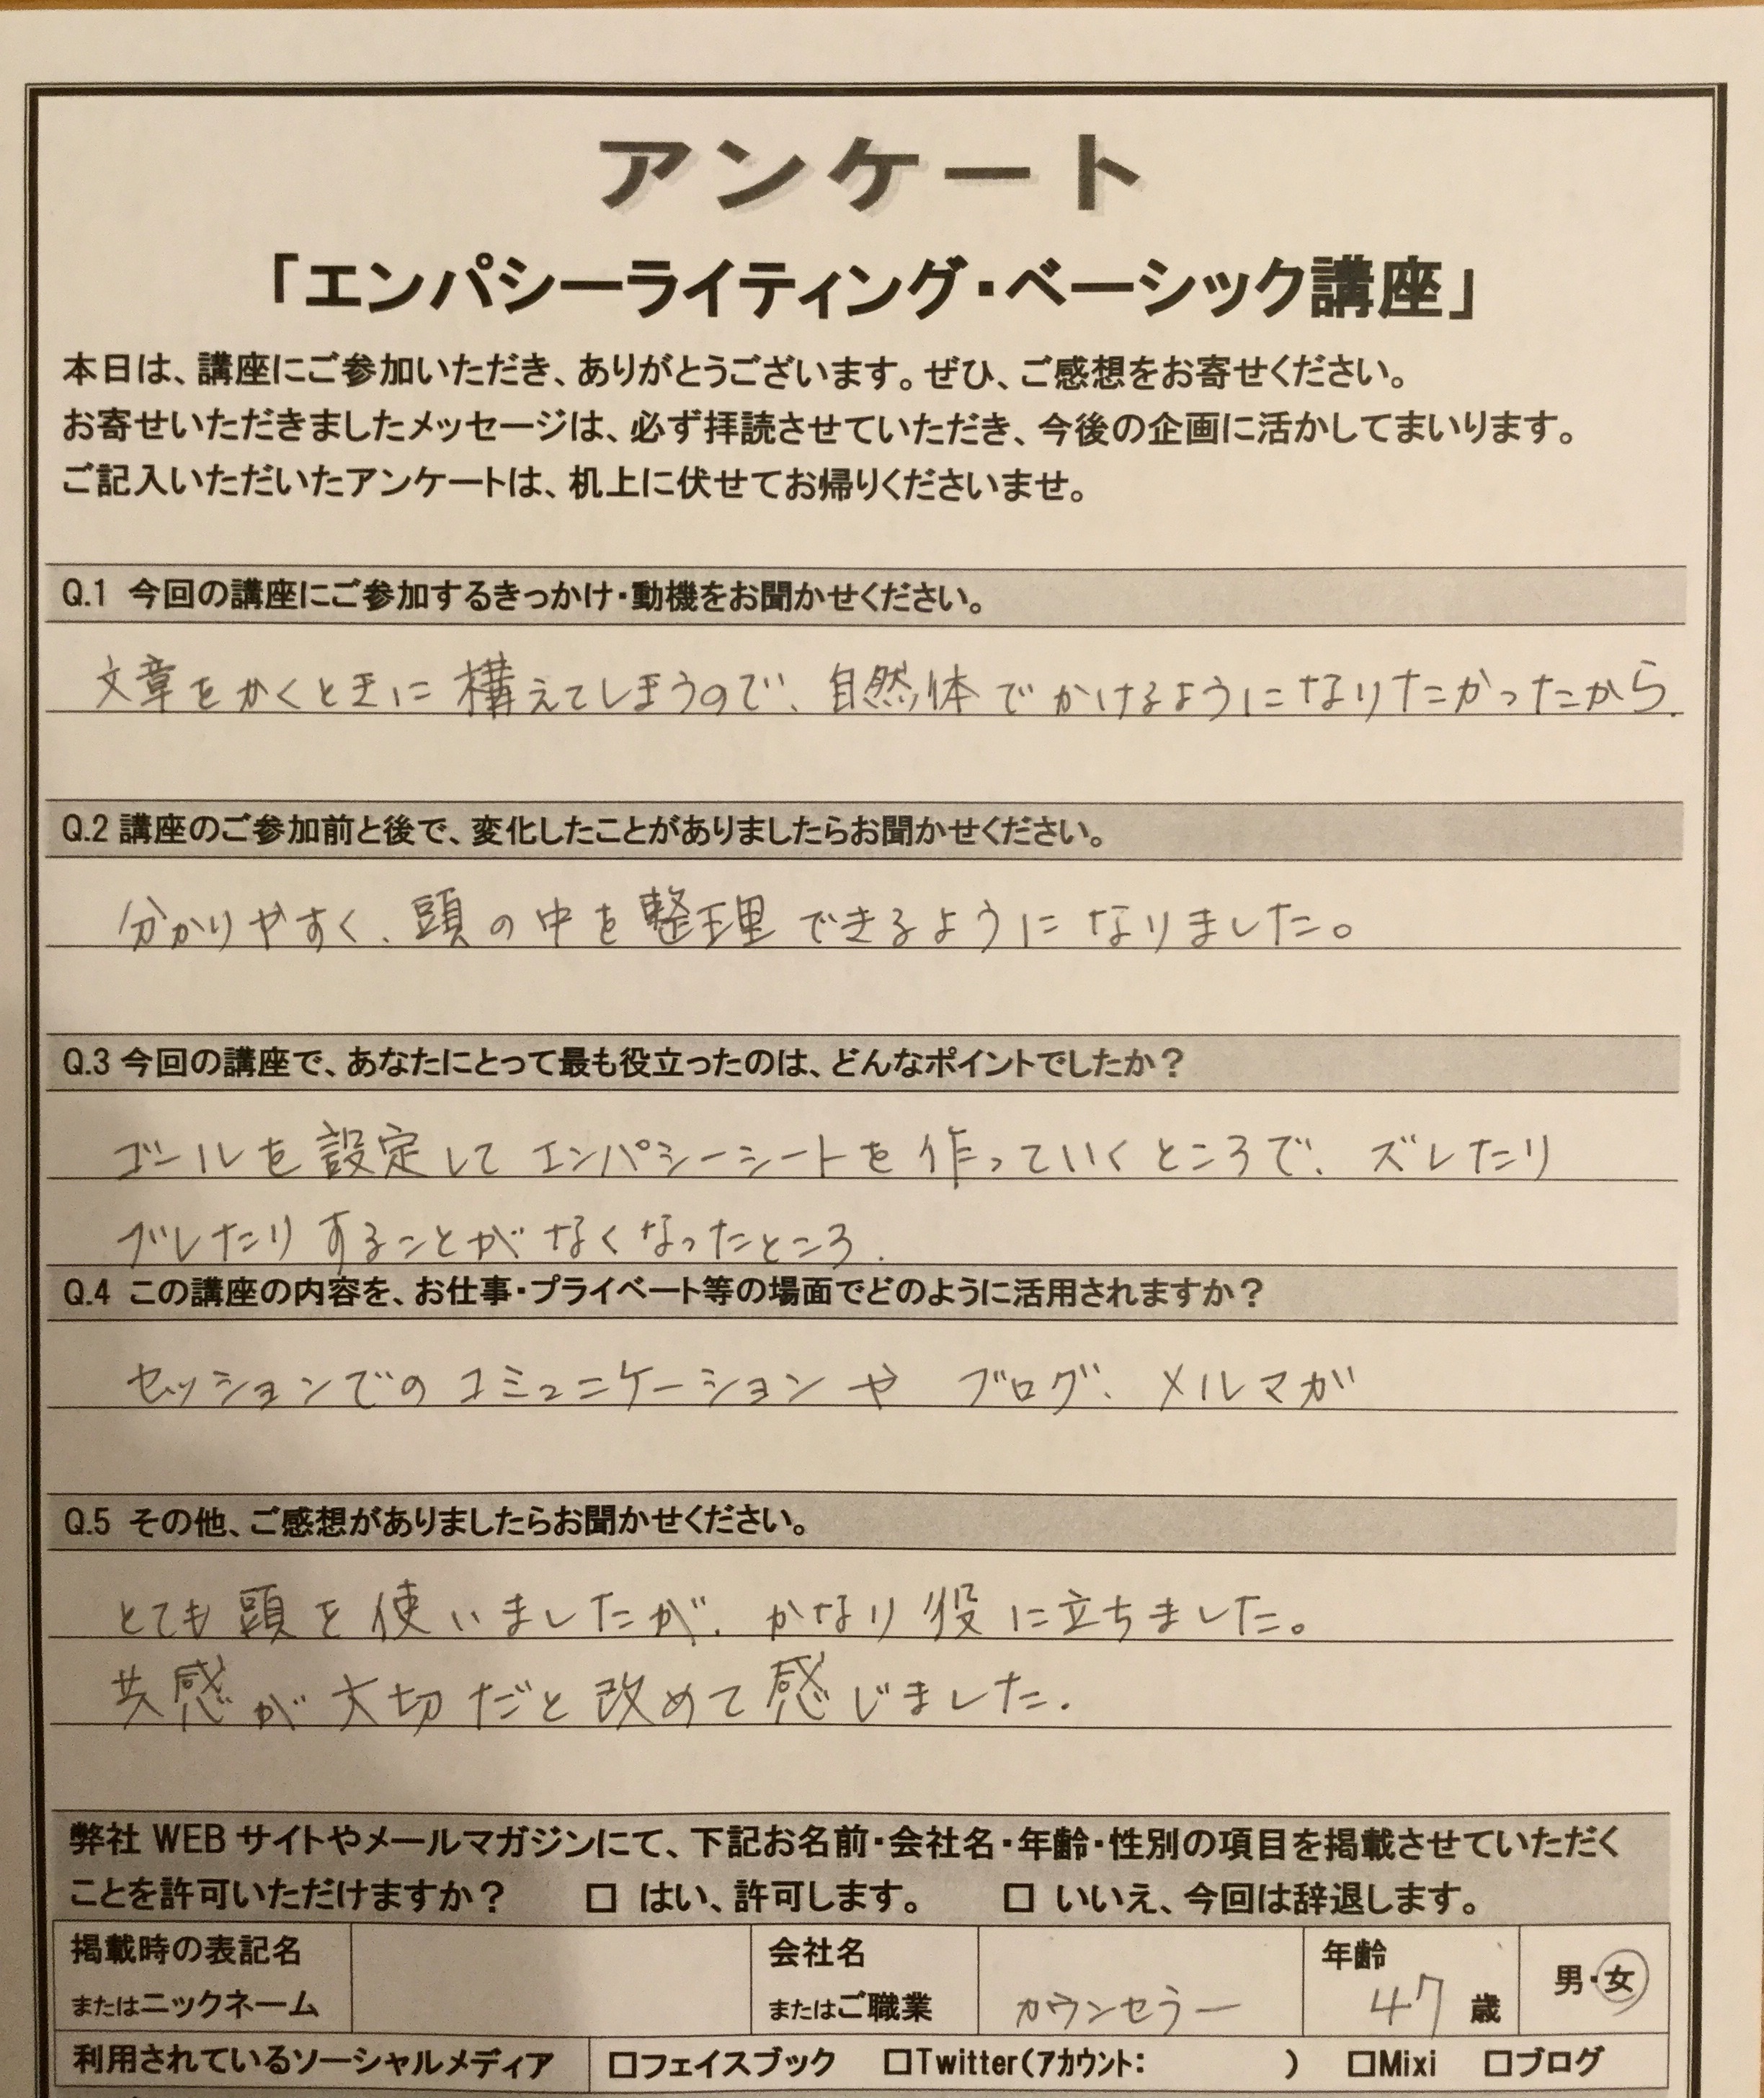 アンケート
「エンパシーライティング・ベーシック講座」
本日は、講座にご参加いただき、ありがとうございます。ぜひ、ご感想をお寄せください。
お寄せいただきましたメッセージは、必ず拝読させていただき、今後の企画に活かしてまいります。
ご記入いただいたアンケートは、机上に伏せてお帰りくださいませ。
Q.1 今回の講座にご参加するきっかけ・動機をお聞かせください。
文章をかくときに構えてしまうので、自然体でかけるようになりたかったから.
Q.2 講座のご参加前と後で、変化したことがありましたらお聞かせください。
分かりやすく、頭の中を整理できるようになりました。
Q.3 今回の講座で、あなたにとって最も役立ったのは、どんなポイントでしたか？
ゴールを設定してエンパシーシートを作っていくところで、ズレたり
ブレたりすることがなくなったところ.
Q.4 この講座の内容を、お仕事・プライベート等の場面でどのように活用されますか？
セッションでのコミュニケーションや ブログ、メルマガ
Q.5 その他、ご感想がありましたらお聞かせください。
とても頭を使いましたが、かなり役に立ちました。
共感が大切だと改めて感じました.
弊社 WEB サイトやメールマガジンにて、下記お名前・会社名・年齢・性別の項目を掲載させていただく
ことを許可いただけますか？ □ はい、許可します。 □ いいえ、今回は辞退します。
掲載時の表記名 会社名 年齢
またはニックネーム またはご職業 カウンセラー 47 歳 男・女
利用されているソーシャルメディア □フェイスブック □Twitter(アカウント: ) □Mixi □ブログ